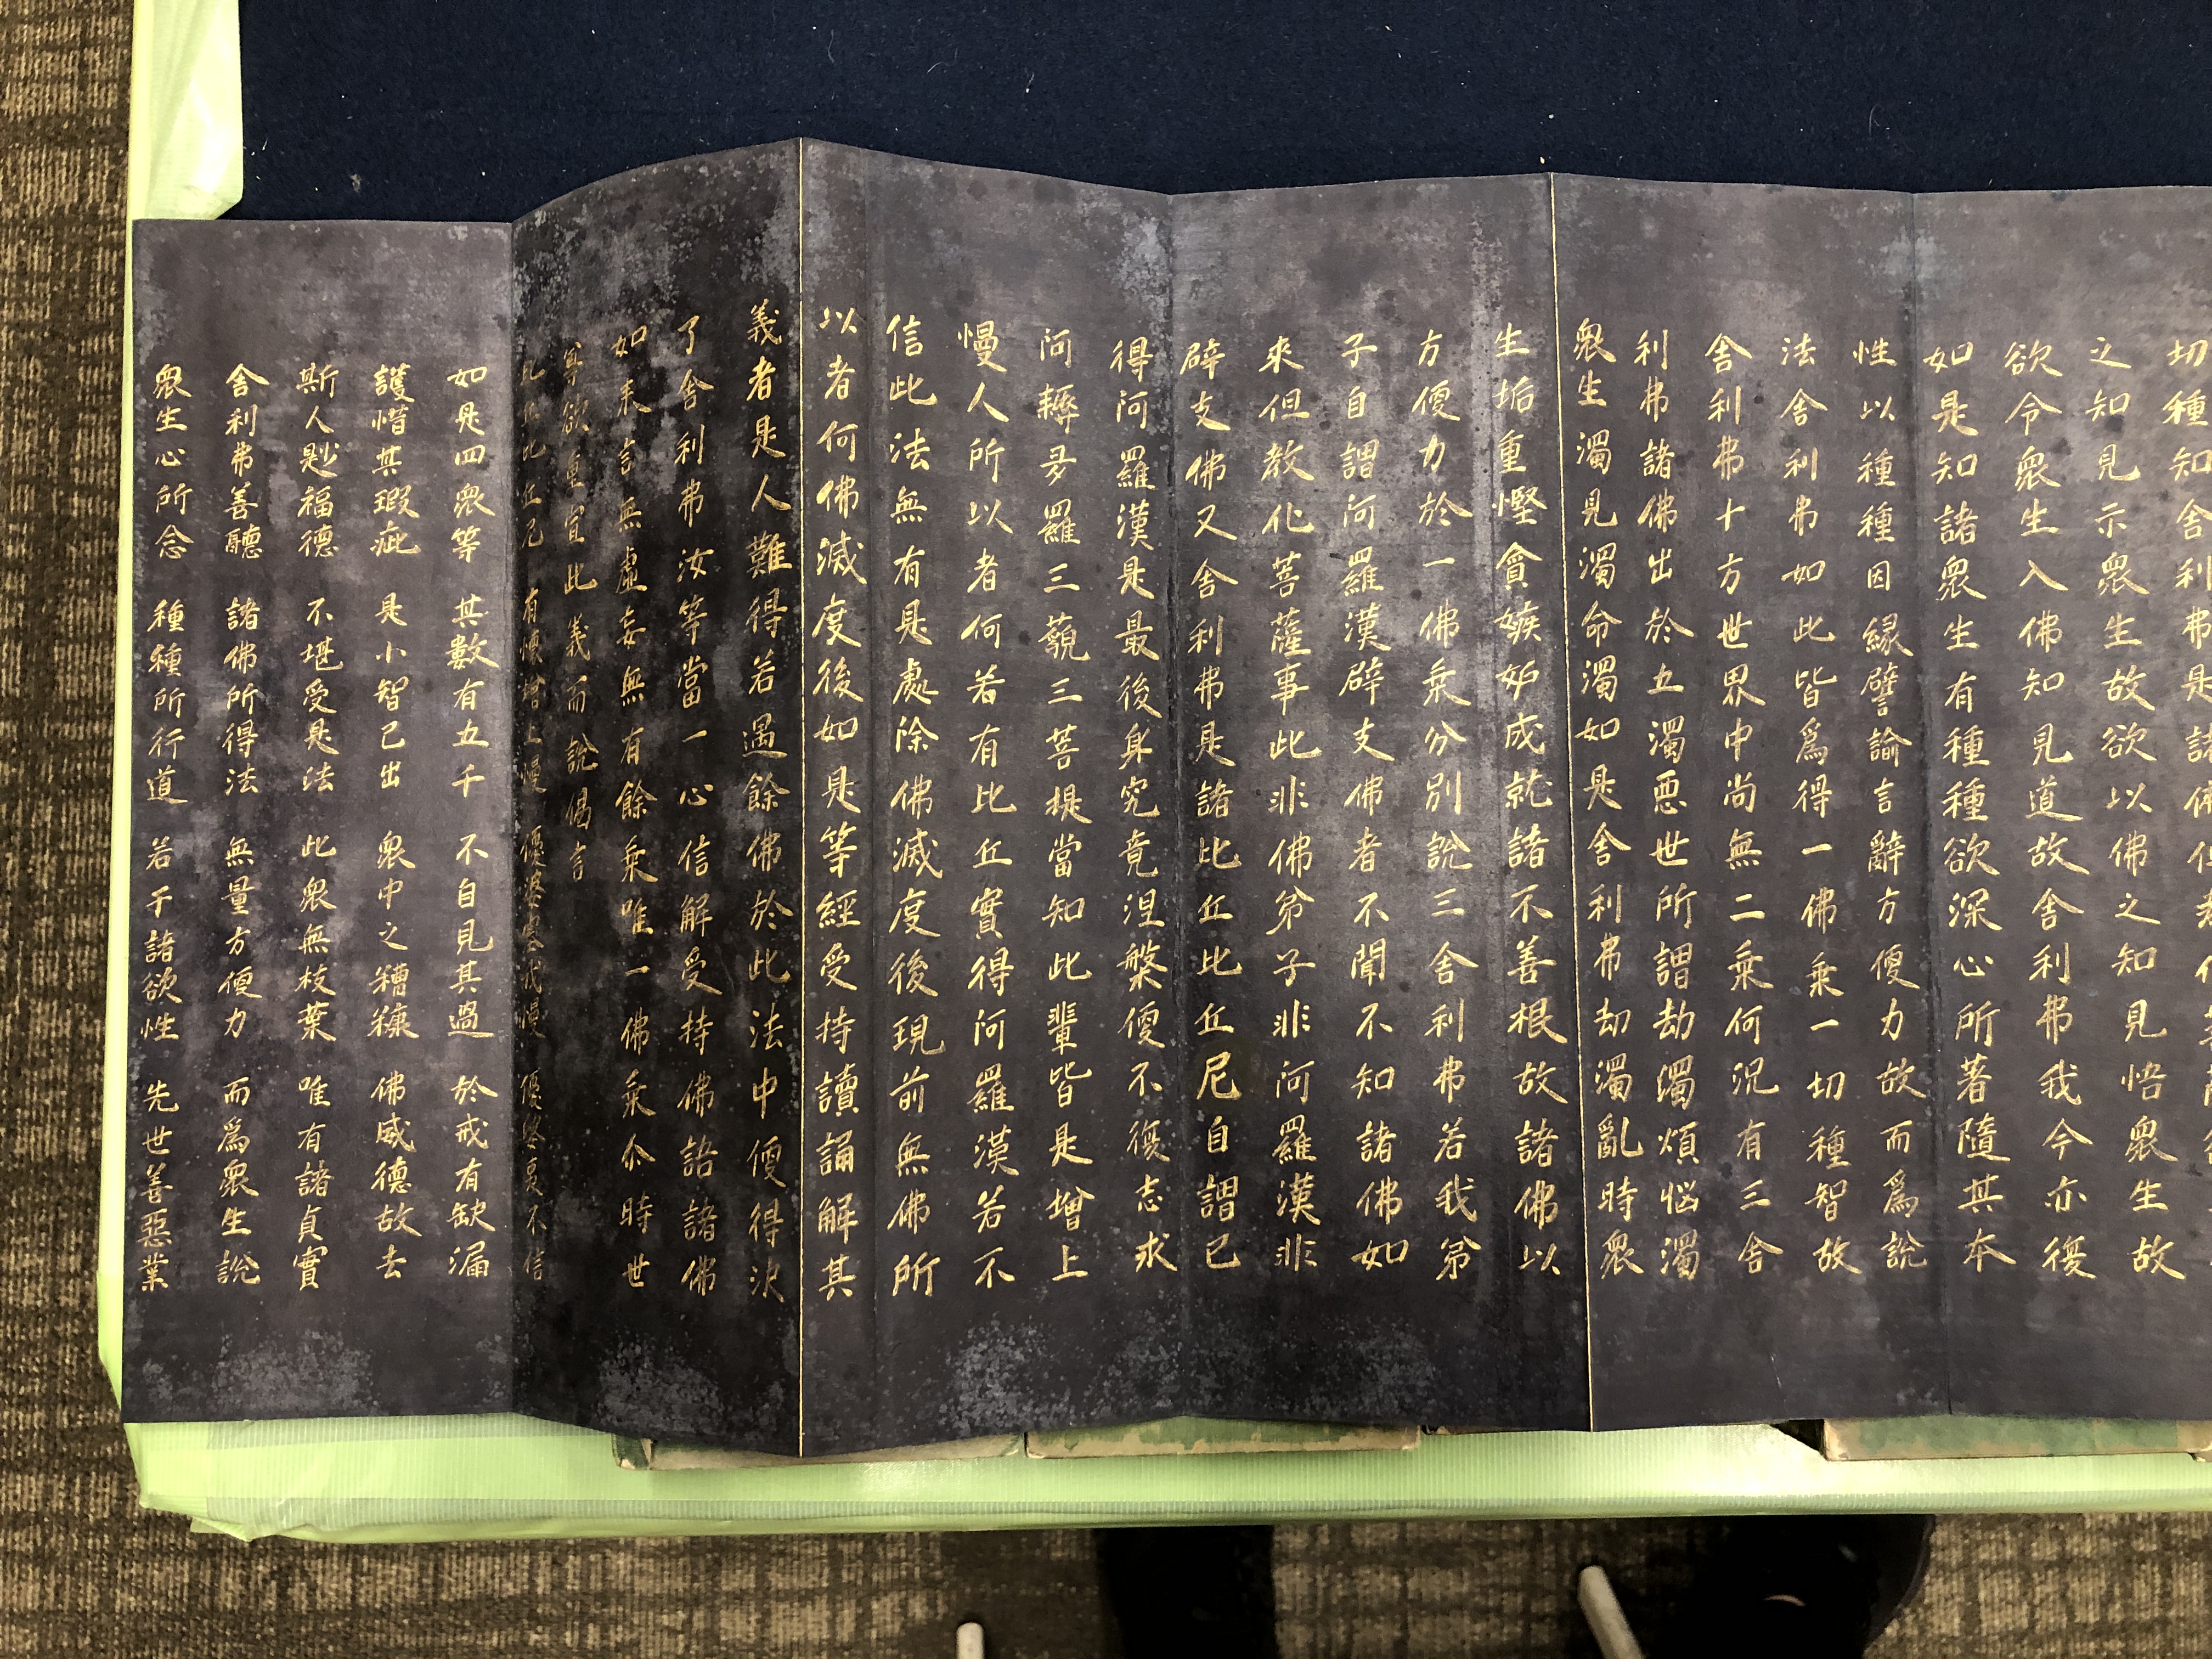 切種知舍利弗是諸佛但
之知見示衆生故欲以佛之知見悟衆生故
欲令衆生入佛知見道故舍利弗我今亦復
如是知諸衆生有種種欲深心所著隨其本
性以種種因緣譬諭言辭方便力故而爲說
法舍利弗如此皆爲得一佛乗一切種智故
舍利弗十方世界中尚無二乗何況有三舍
利弗諸佛出於五濁悪世所謂劫濁煩悩濁
衆生濁見濁命濁如是舍利弗劫濁亂時衆
生垢重慳貪嫉妬成就諸不善根故諸佛以
方便力於一佛乗分別說三舍利弗若我弟
子自謂阿羅漢辟支佛者不聞不知諸佛如
來但教化菩薩事此非佛弟子非阿羅漢非
辟支佛又舍利弗是諸比丘比丘尼自謂已
得阿羅漢是最後身究竟涅槃便不復志求
阿耨多羅三藐三菩提當知此輩皆是增上
慢人所以者何若有比丘實得阿羅漢若不
信此法無有是處除佛滅度後現前無佛所
以者何佛滅度後如是等經受持讀誦解其
義者是人難得若遇餘佛於此法中便得決
了舍利弗汝等當一心信解受持佛語諸佛
如来言無虛妄無有餘乗唯一佛乗尒時世
尊欲重宣此義而說偈言
比丘比丘尼 有懷增上慢 優婆塞我慢 優婆夷不信
如是四衆等 其數有五千 不自見其過 於戒有缺漏
護惜其瑕疵 是小智已出 衆中之糟糠 佛威德故去
斯人尠福德 不堪受是法 此衆無枝葉 唯有諸貞實
舍利弗善聽 諸佛所得法 無量方便力 而爲衆生說
衆生心所念 種種所行道 若干諸欲性 先世善惡業